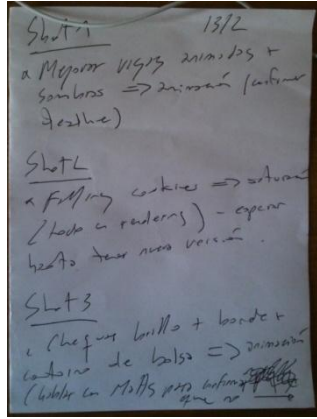 Shot 1 13/2
Mejorar vigas animadas +
sombras => animación (confirmar
deadline)
Shot 2
Falling cookies => saturación
(todo en rendering) - esperar
hasta tener nueva versión.
Shot 3
Chequear brillo + borde +
contorno de bolsa => animación
(hablar con Matts para confirmar
que no